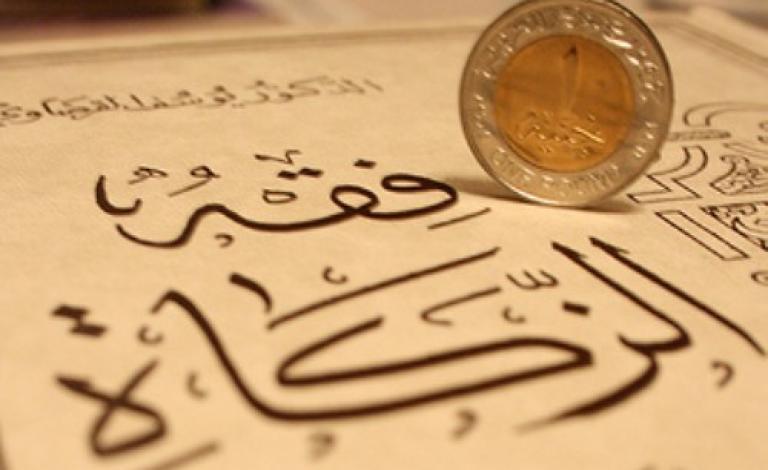 الدكتور يوسف القرضاوي
فقه
الزكاة
١
جنيه
ONE POUND